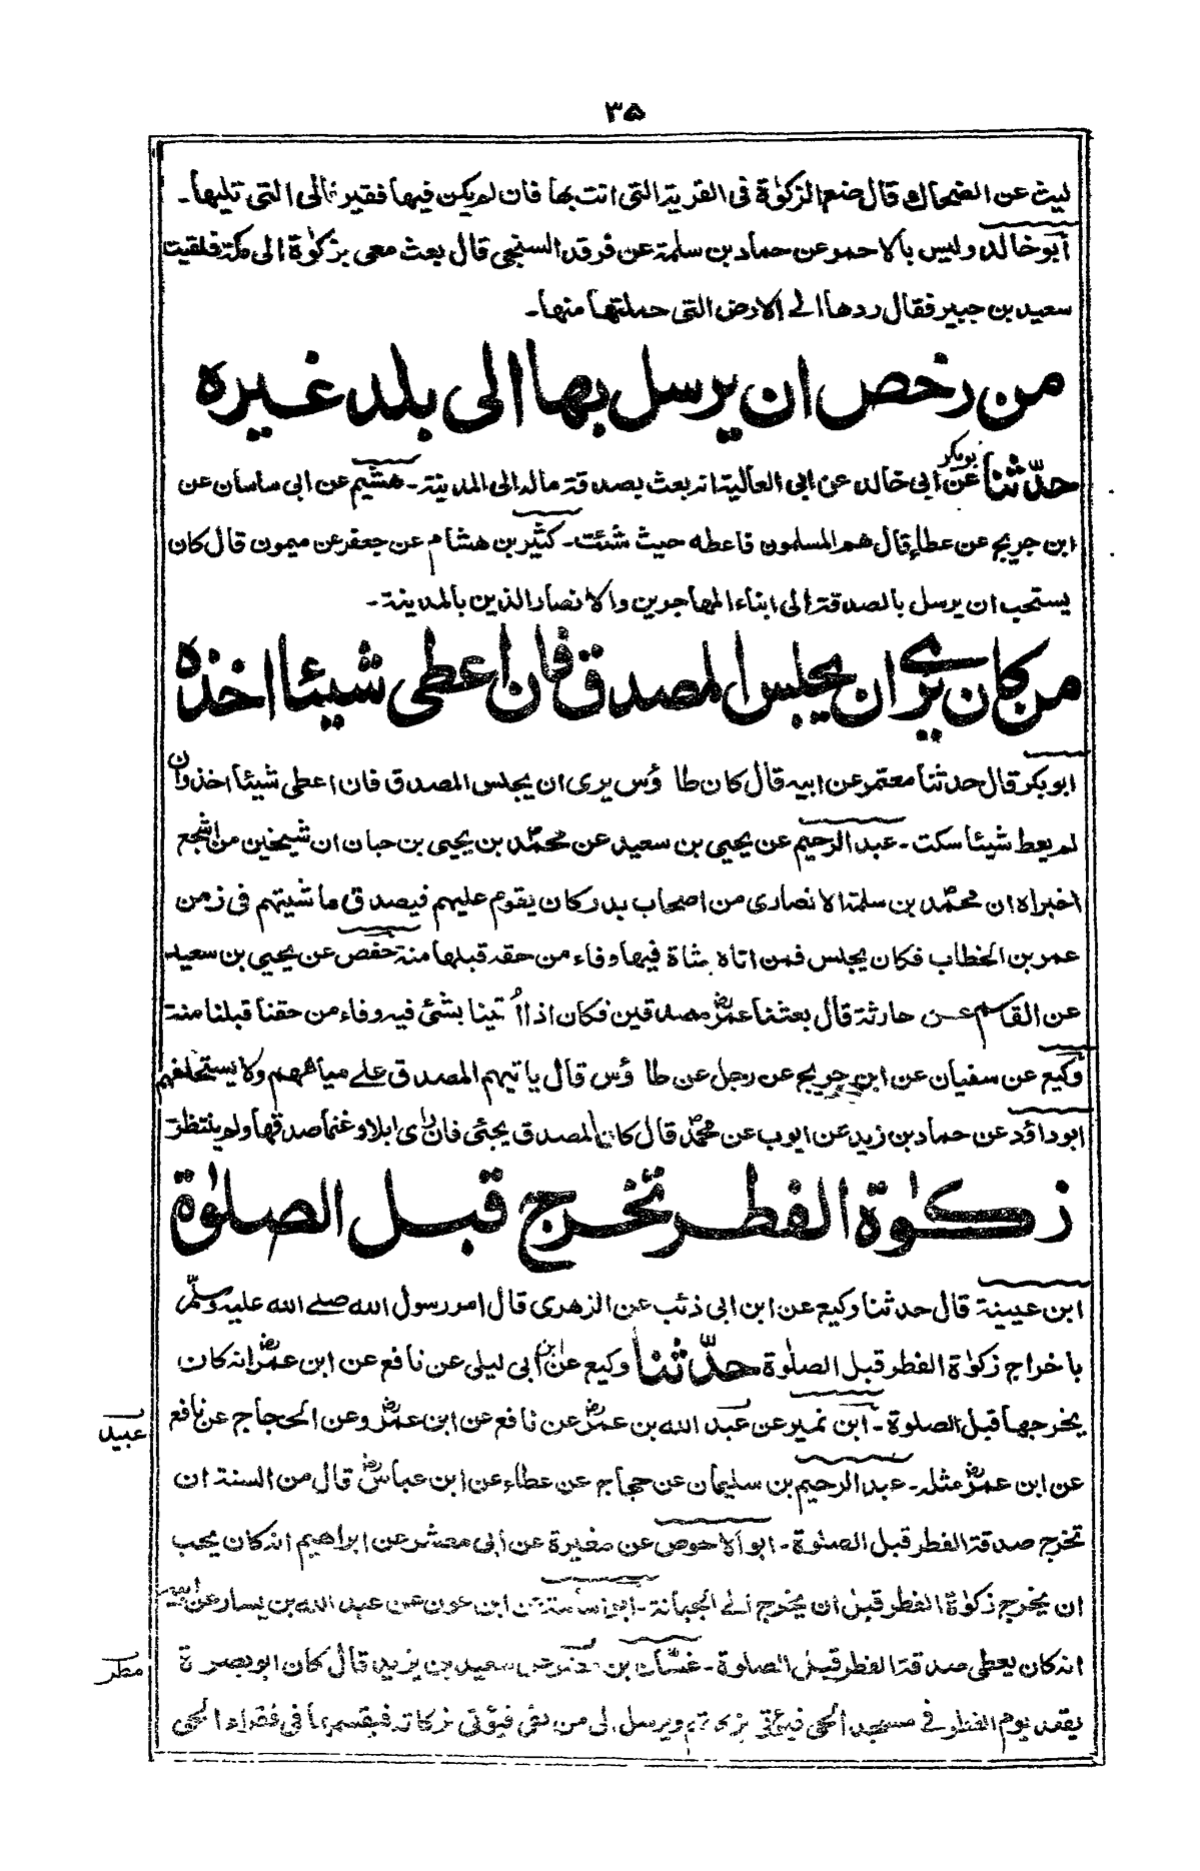 ۳۵
ليث عن الضحاك قال ضع الزكوٰة فى القرية التى انت بها فان لم يكن فيها فقير فالى التى تليها۔
أبو خالد وليس بالاحمر عن حماد بن سلمة عن فرقد السنجى قال بعث معى بزكوٰة الى مكة فلقيت
سعيد بن جبير فقال ردها الے الارض التى حملتها منها۔
من رخص ان يرسل بها الى بلد غيره
حدّثنا بوبكر عن ابى خالد عن ابى العالية انه بعث بصدقة ماله الى المدينة۔ هشيم عن ابى ساسان عن
ابن جريج عن عطاء قال هم المسلمون فاعطه حيث شئت۔ كثير بن هشام عن جعفر عن ميمون قال كان
يستحب ان يرسل بالصدقة الى ابناء المهاجرين والانصار الذين بالمدينة۔
من كان يرى ان يجلس المصدق فان اعطى شيئا اخذه
ابوبكر قال حدثنا معتمر عن ابيه قال كان طاؤس يرى ان يجلس المصدق فان اعطى شيئا اخذ وان
لم يعط شيئا سكت۔ عبد الرحيم عن يحيى بن سعيد عن محمّد بن يحيى بن حبان ان شيخين من اشجع
اخبراه ان محمّد بن سلمة الانصارى من اصحاب بدر كان يقوم عليهم فيصدق ماشيتهم فى زمن
عمر بن الخطاب فكان يجلس فمن اتاه بشاة فيها وفاء من حقه قبلها منه حفص عن يحيى بن سعيد
عن القاسم عن حارثة قال بعثنا عمرؓ مصدقين فكان اذا أتينا بشئ فيه وفاء من حقنا قبلنا منه
وكيع عن سفيان عن ابن جريج عن رجل عن طاؤس قال ياتيهم المصدق علے مياههم ولا يستحلفهم
ابو داؤد عن حماد بن زيد عن ايوب عن محمّد قال كان المصدق يجئى فان راى ابلا وغنما صدقها ولم ينتظر
زكوٰة الفطر تخرج قبل الصلوٰة
ابن عيينة قال حدثنا وكيع عن ابن ابى ذئب عن الزهرى قال امر رسول الله صلے الله عليه وسلّم
باخراج زكوٰة الفطر قبل الصلوٰة حدّثنا وكيع عن ابن ابى ليلى عن نافع عن ابن عمرؓ انه كان
يخرجها قبل الصلوة۔ ابن نمير عن عبد الله بن عمرؓ عن نافع عن ابن عمرؓ وعن الحجاج عن نافع
عبيد
عن ابن عمرؓ مثله۔ عبد الرحيم بن سليمان عن حجاج عن عطاء عن ابن عباسؓ قال من السنة ان
تخرج صدقة الفطر قبل الصلوة۔ ابو الاحوص عن مغيرة عن أبى معشر عن ابراهيم انه كان يحب
ان يخرج زكوٰة الفطر قبل ان يخرج الے الجبانة۔ ابو اسامة عن ابن عون عن عبد الله بن يسار عن
انه كان يعطى صدقة الفطر قبل الصلوة۔ غسان بن مضر عن سعيد بن يزيد قال كان ابو بصرة
مطر
يقعد يوم الفطر فے مسجد الحى فيؤتى بزكاتهم ويرسل الى من بقى فيؤتى بزكاته فيقسمها فى فقراء الحى